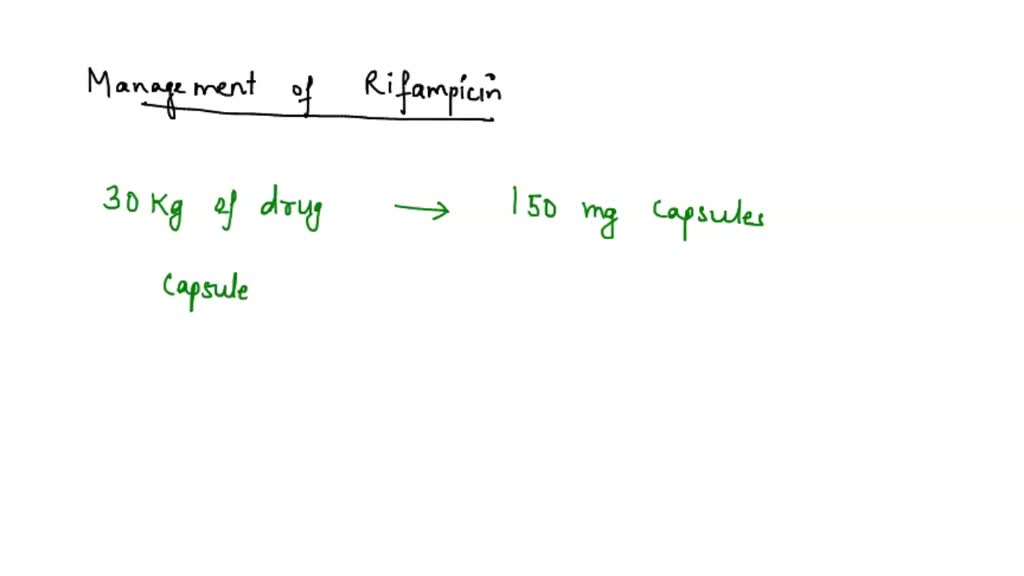 Management of Rifampicin
30 Kg of drug → 150 mg capsules
Capsule